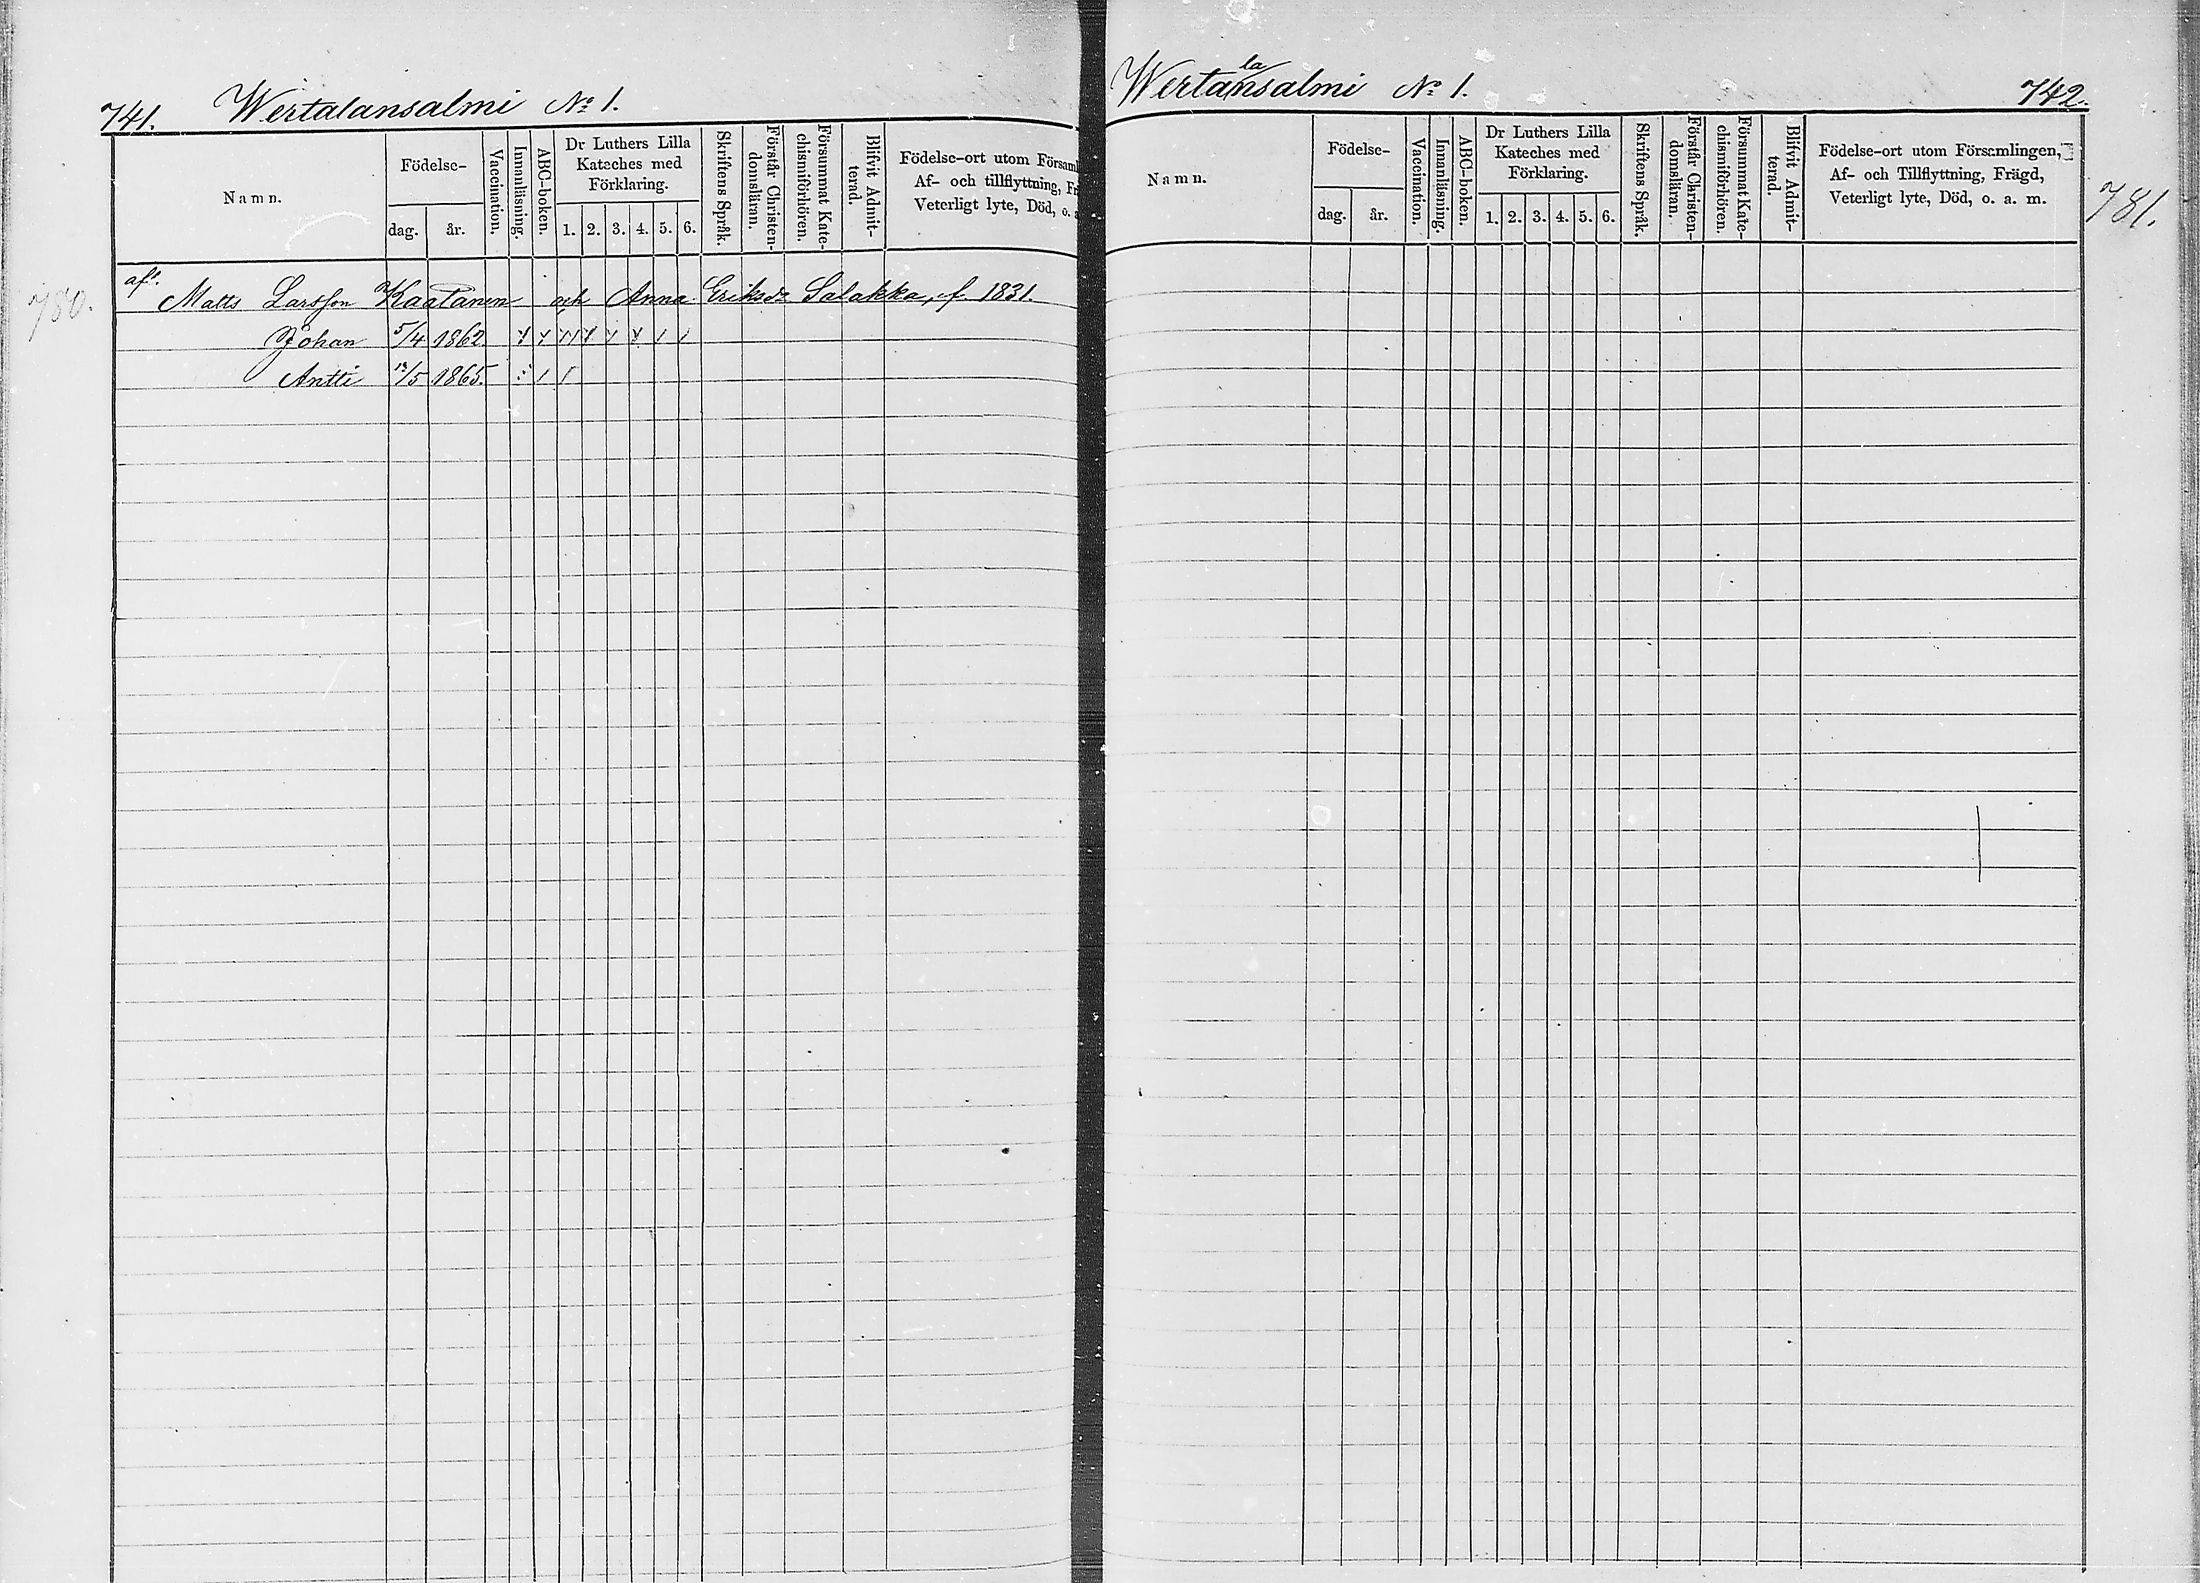 741. Wertalansalmi No 1.
Namn.
Födelse-
dag. år.
Vaccination.
Innanläsning.
ABC-boken.
Dr Luthers Lilla
Kateches med
Förklaring.
1. 2. 3. 4. 5. 6.
Skriftens Språk.
Förstår Christen-
domsläran.
Försummat Kate-
chismiförhören.
Blifvit Admit-
terad.
Födelse-ort utom Församl
Af- och tillflyttning, Fr
Veterligt lyte, Död, o. a
780.
af.
Matts Larsson Kaatanen och Anna Eriksdr Salakka, f. 1831.
Johan 5/4 1862.
Antti 12/5 1865.
Wertalansalmi No 1. 742.
Namn.
Födelse-
dag. år.
Vaccination.
Innanläsning.
ABC-boken.
Dr Luthers Lilla
Kateches med
Förklaring.
1. 2. 3. 4. 5. 6.
Skriftens Språk.
Förstår Christen-
domsläran.
Försummat Kate-
chismiförhören.
Blifvit Admit-
terad.
Födelse-ort utom Församlingen,
Af- och Tillflyttning, Frägd,
Veterligt lyte, Död, o. a. m.
781.